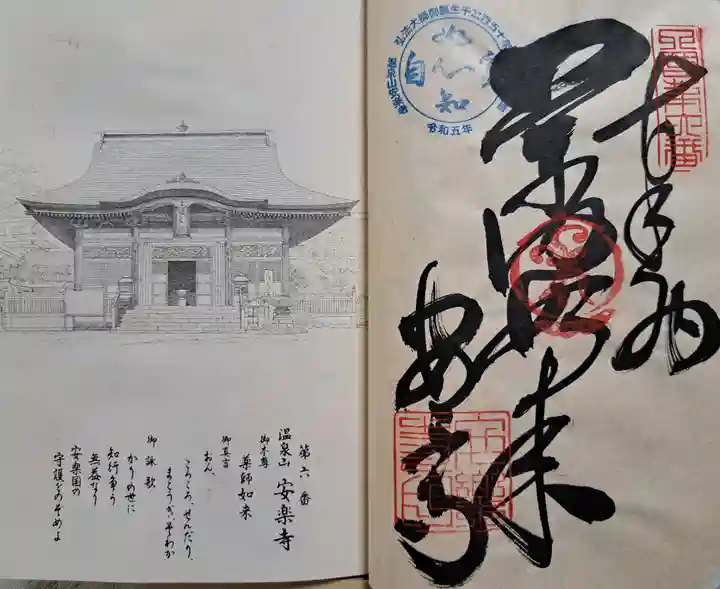 第六番
温泉山 安楽寺
御本尊
薬師如来
御真言
おん、
ころころ、せんだり、
まとうぎ、そわか
御詠歌
かりの世に
知行争う
無益なり
安楽国の
守護をのぞめよ
奉納
薬師如来
安楽寺
弘法大師御誕生千二百五十年
令和五年